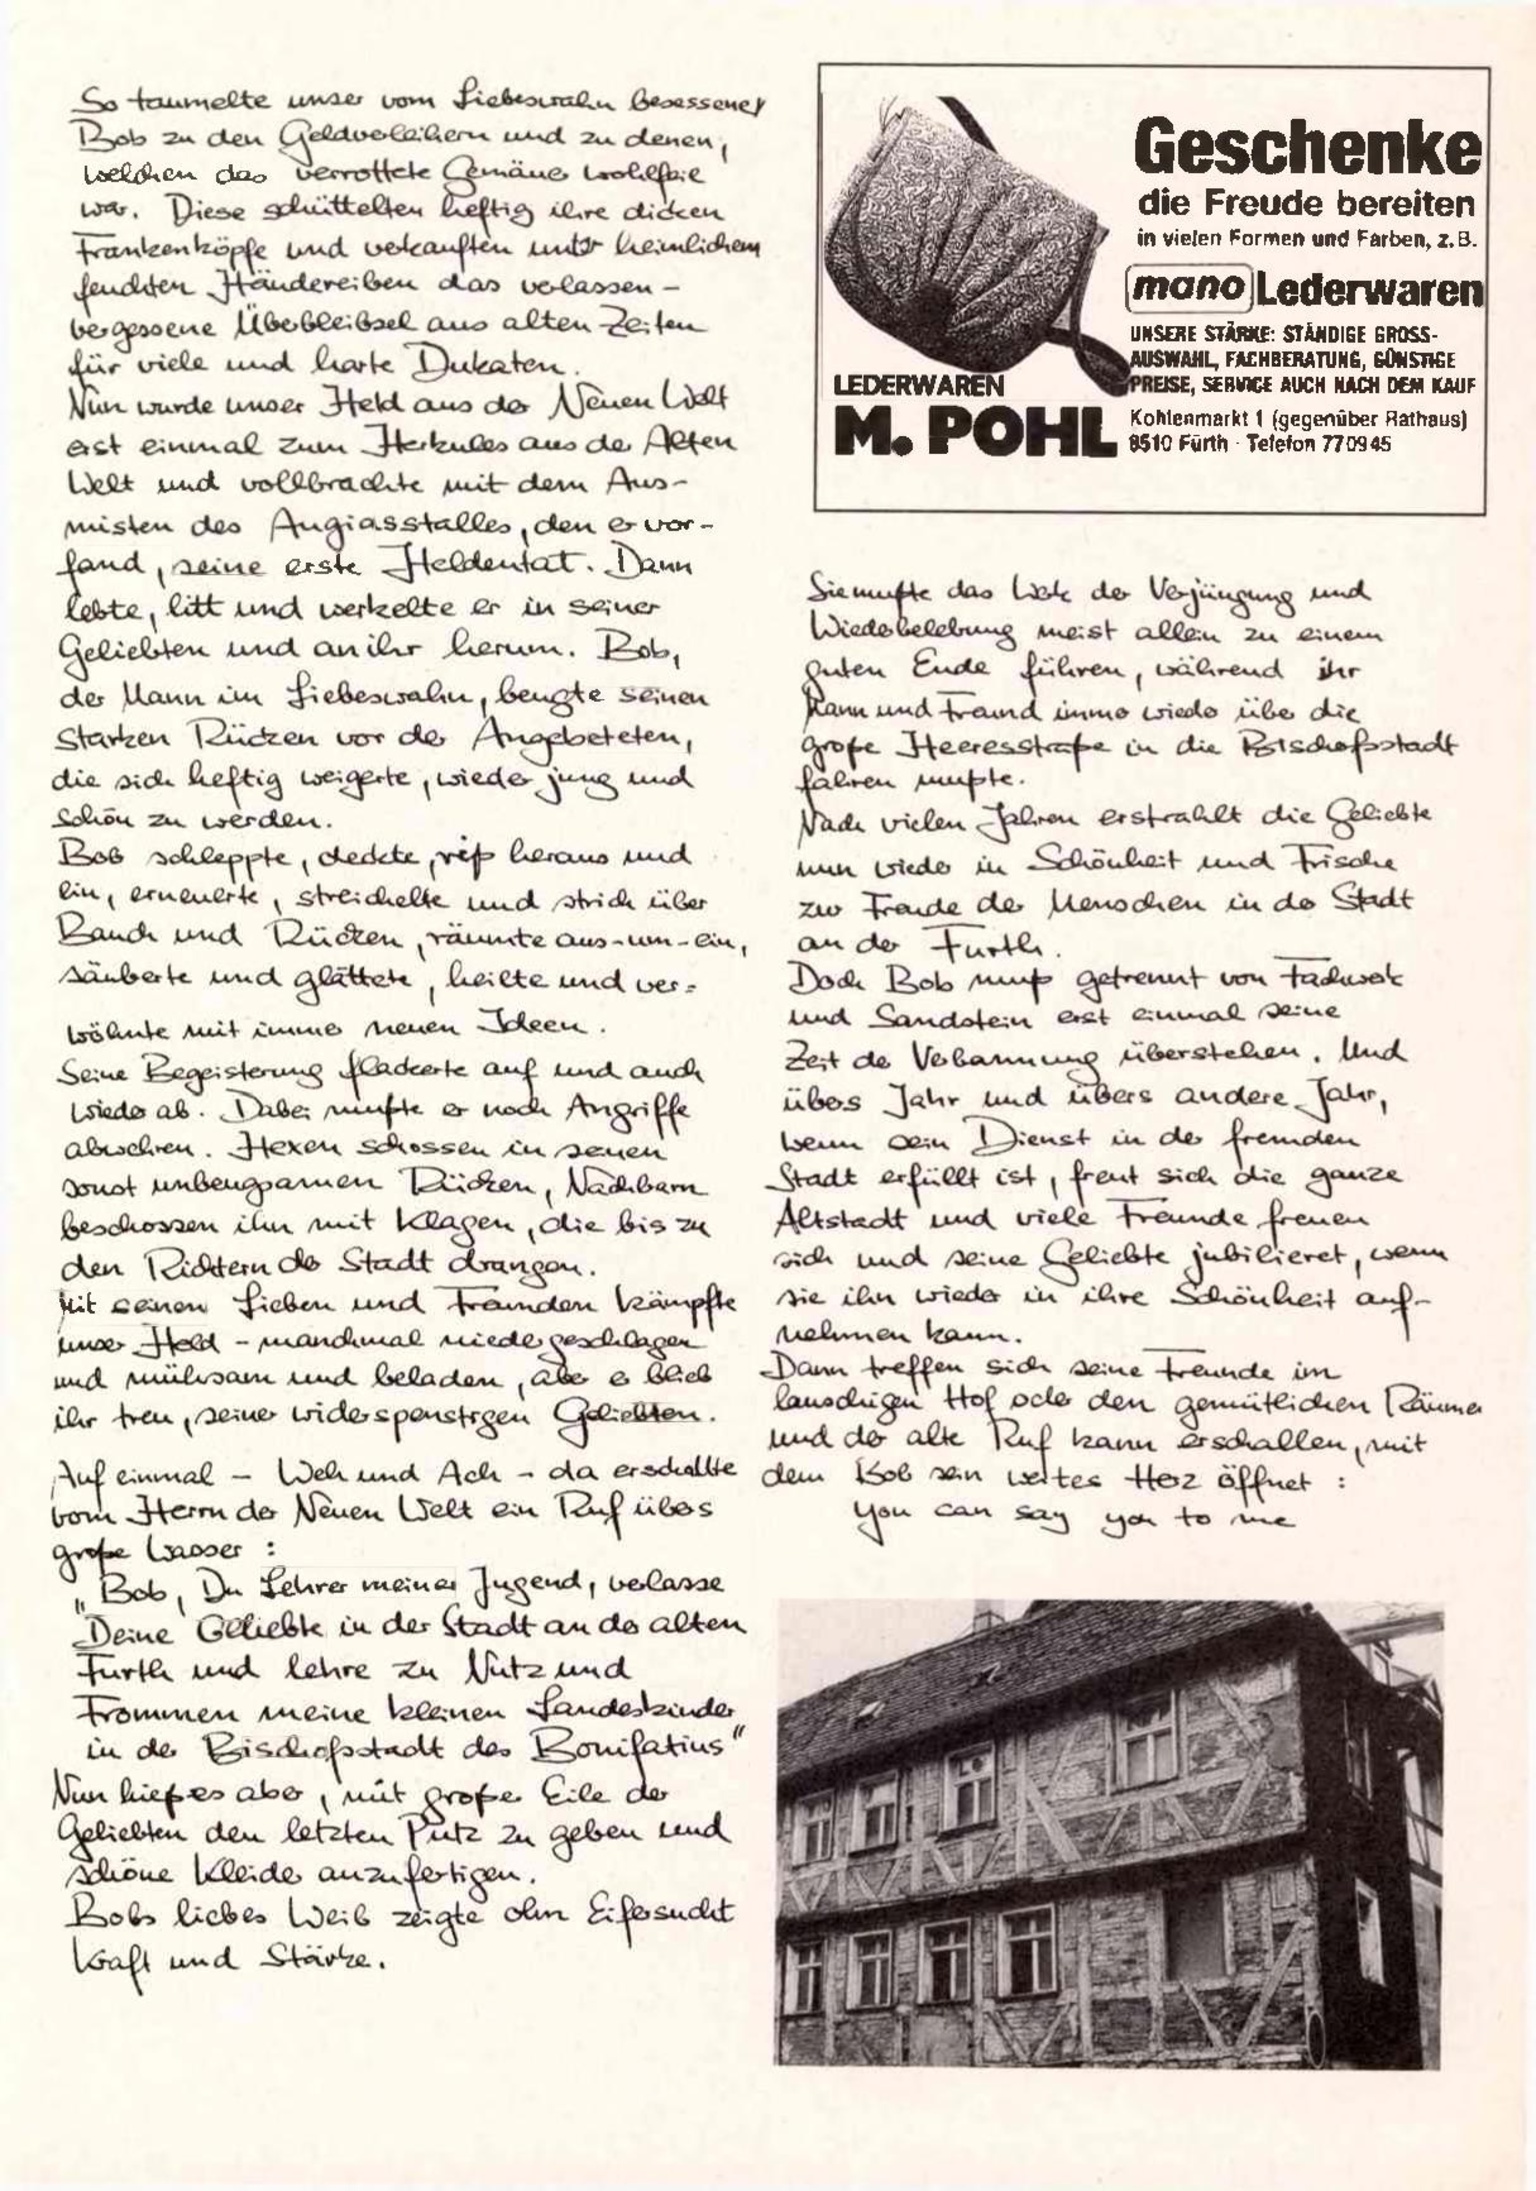 So taumelte unser vom Liebeswahn besessener
Bob zu den Geldverleihern und zu denen,
welchen das verrottete Gemäuer wohlfeil
war. Diese schüttelten heftig ihre dicken
Frankenköpfe und verkauften unter heimlichem
feuchten Händereiben das verlassen-
vergessene Überbleibsel aus alten Zeiten
für viele und harte Dukaten.
Nun wurde unser Held aus der Neuen Welt
erst einmal zum Herkules aus der Alten
Welt und vollbrachte mit dem Aus-
misten des Augiasstalles, den er vor-
fand, seine erste Heldentat. Dann
lebte, litt und werkelte er in seiner
Geliebten und an ihr herum. Bob,
der Mann im Liebeswahn, beugte seinen
starken Rücken vor der Angebeteten,
die sich heftig weigerte, wieder jung und
schön zu werden.
Bob schleppte, deckte, riß heraus und
ein, erneuerte, streichelte und strich über
Bauch und Rücken, räumte aus-um-ein,
säuberte und glättete, heilte und ver=
wöhnte mit immer neuen Ideen.
Seine Begeisterung flackerte auf und auch
wieder ab. Dabei mußte er noch Angriffe
abwehren. Hexen schossen in seinen
sonst unbeugsamen Rücken, Nachbarn
beschossen ihn mit Klagen, die bis zu
den Richtern der Stadt drangen.
Mit seinen Lieben und Freunden kämpfte
unser Held - manchmal niedergeschlagen
und mühsam und beladen, aber er blieb
ihr treu, seiner widerspenstigen Geliebten.
Auf einmal - Weh und Ach - da erschallte
vom Herrn der Neuen Welt ein Ruf übers
große Wasser :
"Bob, Du Lehrer meiner Jugend, verlasse
Deine Geliebte in der Stadt an der alten
Furth und lehre zu Nutz und
Frommen meine kleinen Landeskinder
in der Bischofsstadt des Bonifatius"
Nun hieß es aber, mit großer Eile der
Geliebten den letzten Putz zu geben und
schöne Kleider anzufertigen.
Bobs liebes Weib zeigte ohn Eifersucht
Kraft und Stärke.
Geschenke
die Freude bereiten
in vielen Formen und Farben, z.B.
mano Lederwaren
UNSERE STÄRKE: STÄNDIGE GROSS-
AUSWAHL, FACHBERATUNG, GÜNSTIGE
PREISE, SERVICE AUCH NACH DEM KAUF
LEDERWAREN
M. POHL
Kohlenmarkt 1 (gegenüber Rathaus)
8510 Fürth · Telefon 77 09 45
Sie mußte das Werk der Verjüngung und
Wiederbelebung meist allein zu einem
guten Ende führen, während ihr
Mann und Freund immer wieder über die
große Heeresstraße in die Bischofsstadt
fahren mußte.
Nach vielen Jahren erstrahlt die Geliebte
nun wieder in Schönheit und Frische
zur Freude der Menschen in der Stadt
an der Furth.
Doch Bob muß getrennt von Fachwerk
und Sandstein erst einmal seine
Zeit der Verbannung überstehen. Und
übers Jahr und übers andere Jahr,
wenn sein Dienst in der fremden
Stadt erfüllt ist, freut sich die ganze
Altstadt und viele Freunde freuen
sich und seine Geliebte jubilieret, wenn
sie ihn wieder in ihre Schönheit auf-
nehmen kann.
Dann treffen sich seine Freunde im
lauschigen Hof oder den gemütlichen Räumen
und der alte Ruf kann erschallen, mit
dem Bob sein weites Herz öffnet :
You can say you to me